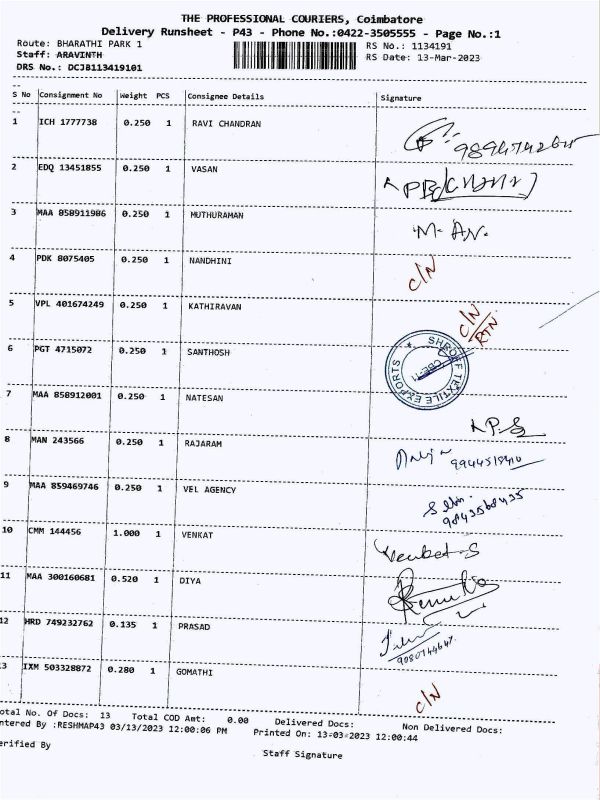 THE PROFESSIONAL COURIERS, Coimbatore
Delivery Runsheet - P43 - Phone No.:0422-3505555 - Page No.:1
Route: BHARATHI PARK 1 RS No.: 1134191
Staff: ARAVINTH RS Date: 13-Mar-2023
DRS No.: DCJB113419101
S No Consignment No Weight PCS Consignee Details Signature
1 ICH 1777738 0.250 1 RAVI CHANDRAN
2 EDQ 13451855 0.250 1 VASAN
3 MAA 858911986 0.250 1 MUTHURAMAN M. AN.
4 PDK 8075405 0.250 1 NANDHINI C/N
5 VPL 401674249 0.250 1 KATHIRAVAN C/N
RTN
6 PGT 4715072 0.250 1 SANTHOSH SHROFF TEXTILE EXPORTS CBE-11
7 MAA 858912001 0.250 1 NATESAN
8 MAN 243566 0.250 1 RAJARAM
9 MAA 859469746 0.250 1 VEL AGENCY
9843568435
10 CMM 144456 1.000 1 VENKAT Venkat-S
11 MAA 300160681 0.520 1 DIYA
12 HRD 749232762 0.135 1 PRASAD
9080744647
3 IXM 503328872 0.280 1 GOMATHI C/N
otal No. Of Docs: 13 Total COD Amt: 0.00 Delivered Docs: Non Delivered Docs:
ntered By :RESHMAP43 03/13/2023 12:00:06 PM Printed On: 13-03-2023 12:00:44
erified By Staff Signature